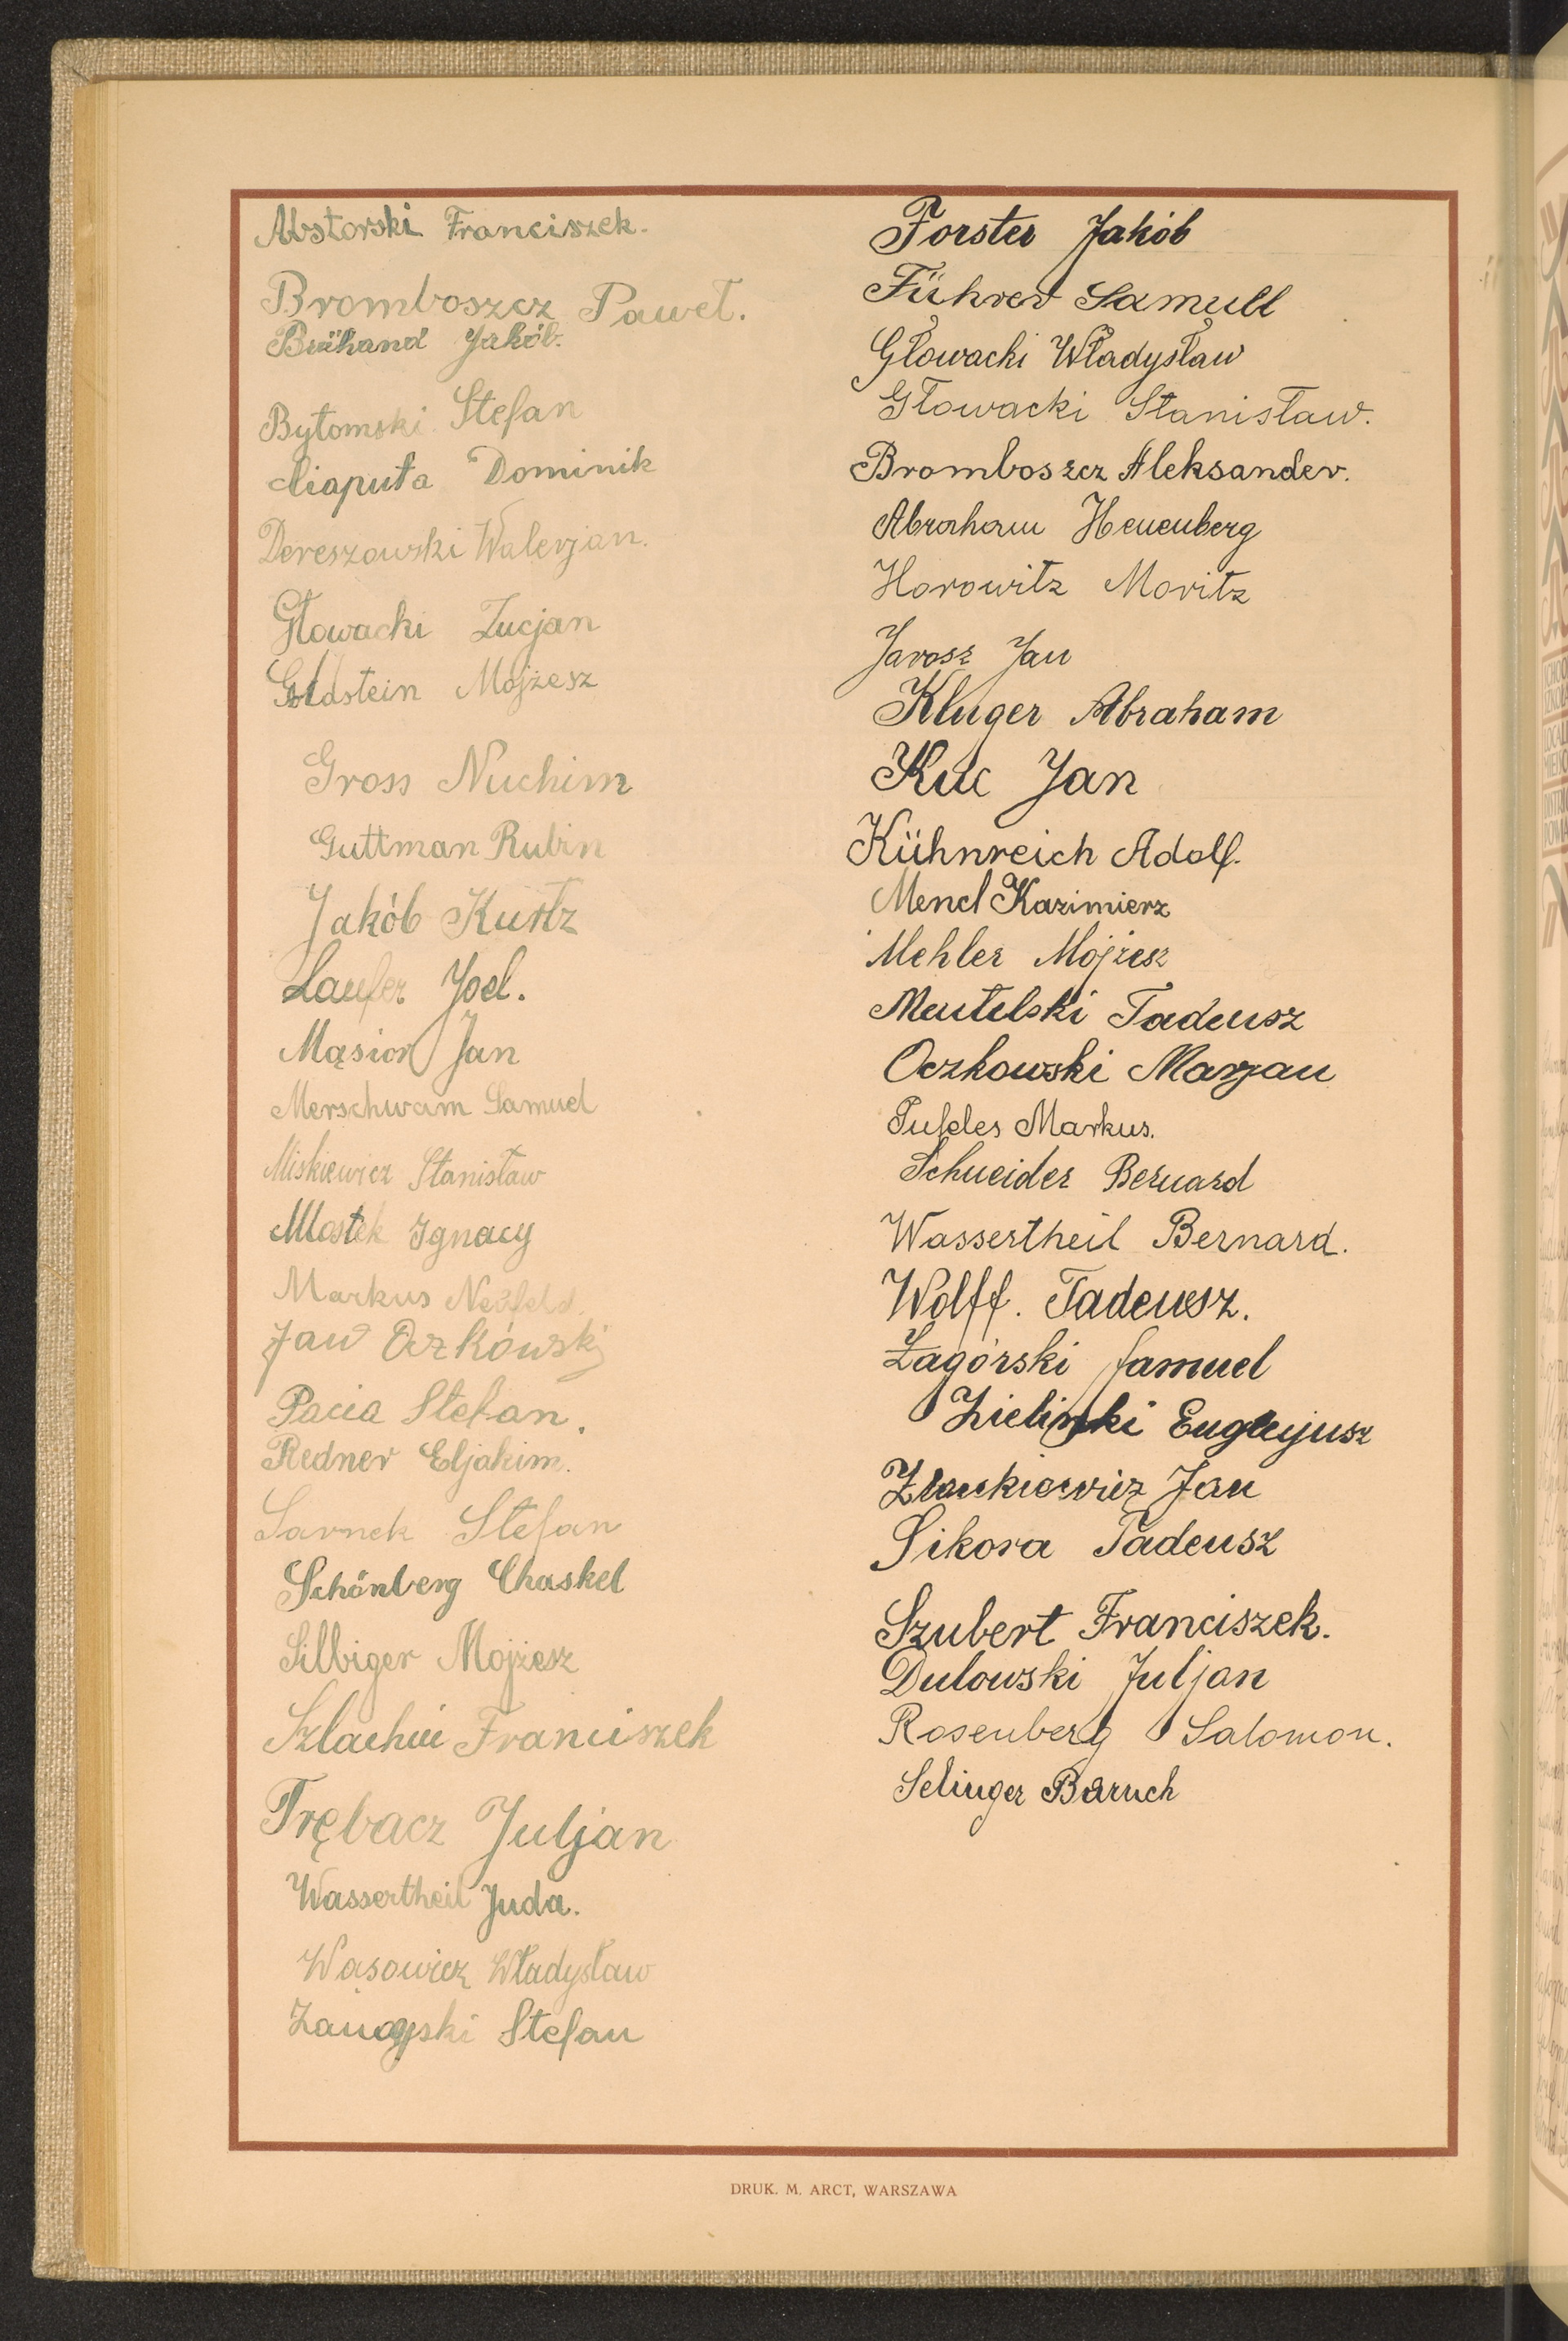 Abstorski Franciszek.
Bromboszcz Paweł.
Bukhand Jakób.
Bytomski Stefan
Ciaputa Dominik
Dereszowski Walerjan.
Głowacki Lucjan
Goldstein Mojżesz
Gross Nuchim
Guttman Rubin
Jakób Kurtz
Laufer Joel.
Mąsior Jan
Merschwam Samuel
Miskiewicz Stanisław
Mostek Ignacy
Markus Neufeld.
Jan Oczkowski
Pacia Stefan.
Redner Eljakim.
Sarnek Stefan
Schönberg Chaskel
Silbiger Mojżesz
Franciszek
Trębacz Juljan
Wassertheil Juda.
Wąsowicz Władysław
Stefan
Forster Jakób
Führer Samuel
Głowacki Władysław
Głowacki Stanisław.
Bromboszcz Aleksander.
Abraham Henenberg
Horowitz Moritz
Jarosz Jan
Kluger Abraham
Kuc Jan
Kühnreich Adolf.
Mencl Kazimierz
Mehler Mojżesz
Mentelski Tadeusz
Oczkowski Marjan
Pufeles Markus.
Schneider Bernard
Wassertheil Bernard.
Wolff. Tadeusz.
Zagórski Samuel
Zieliński Eugenjusz
Jan
Sikora Tadeusz
Szubert Franciszek.
Dulowski Juljan
Rosenberg Salomon.
Selinger Baruch
DRUK. M. ARCT, WARSZAWA